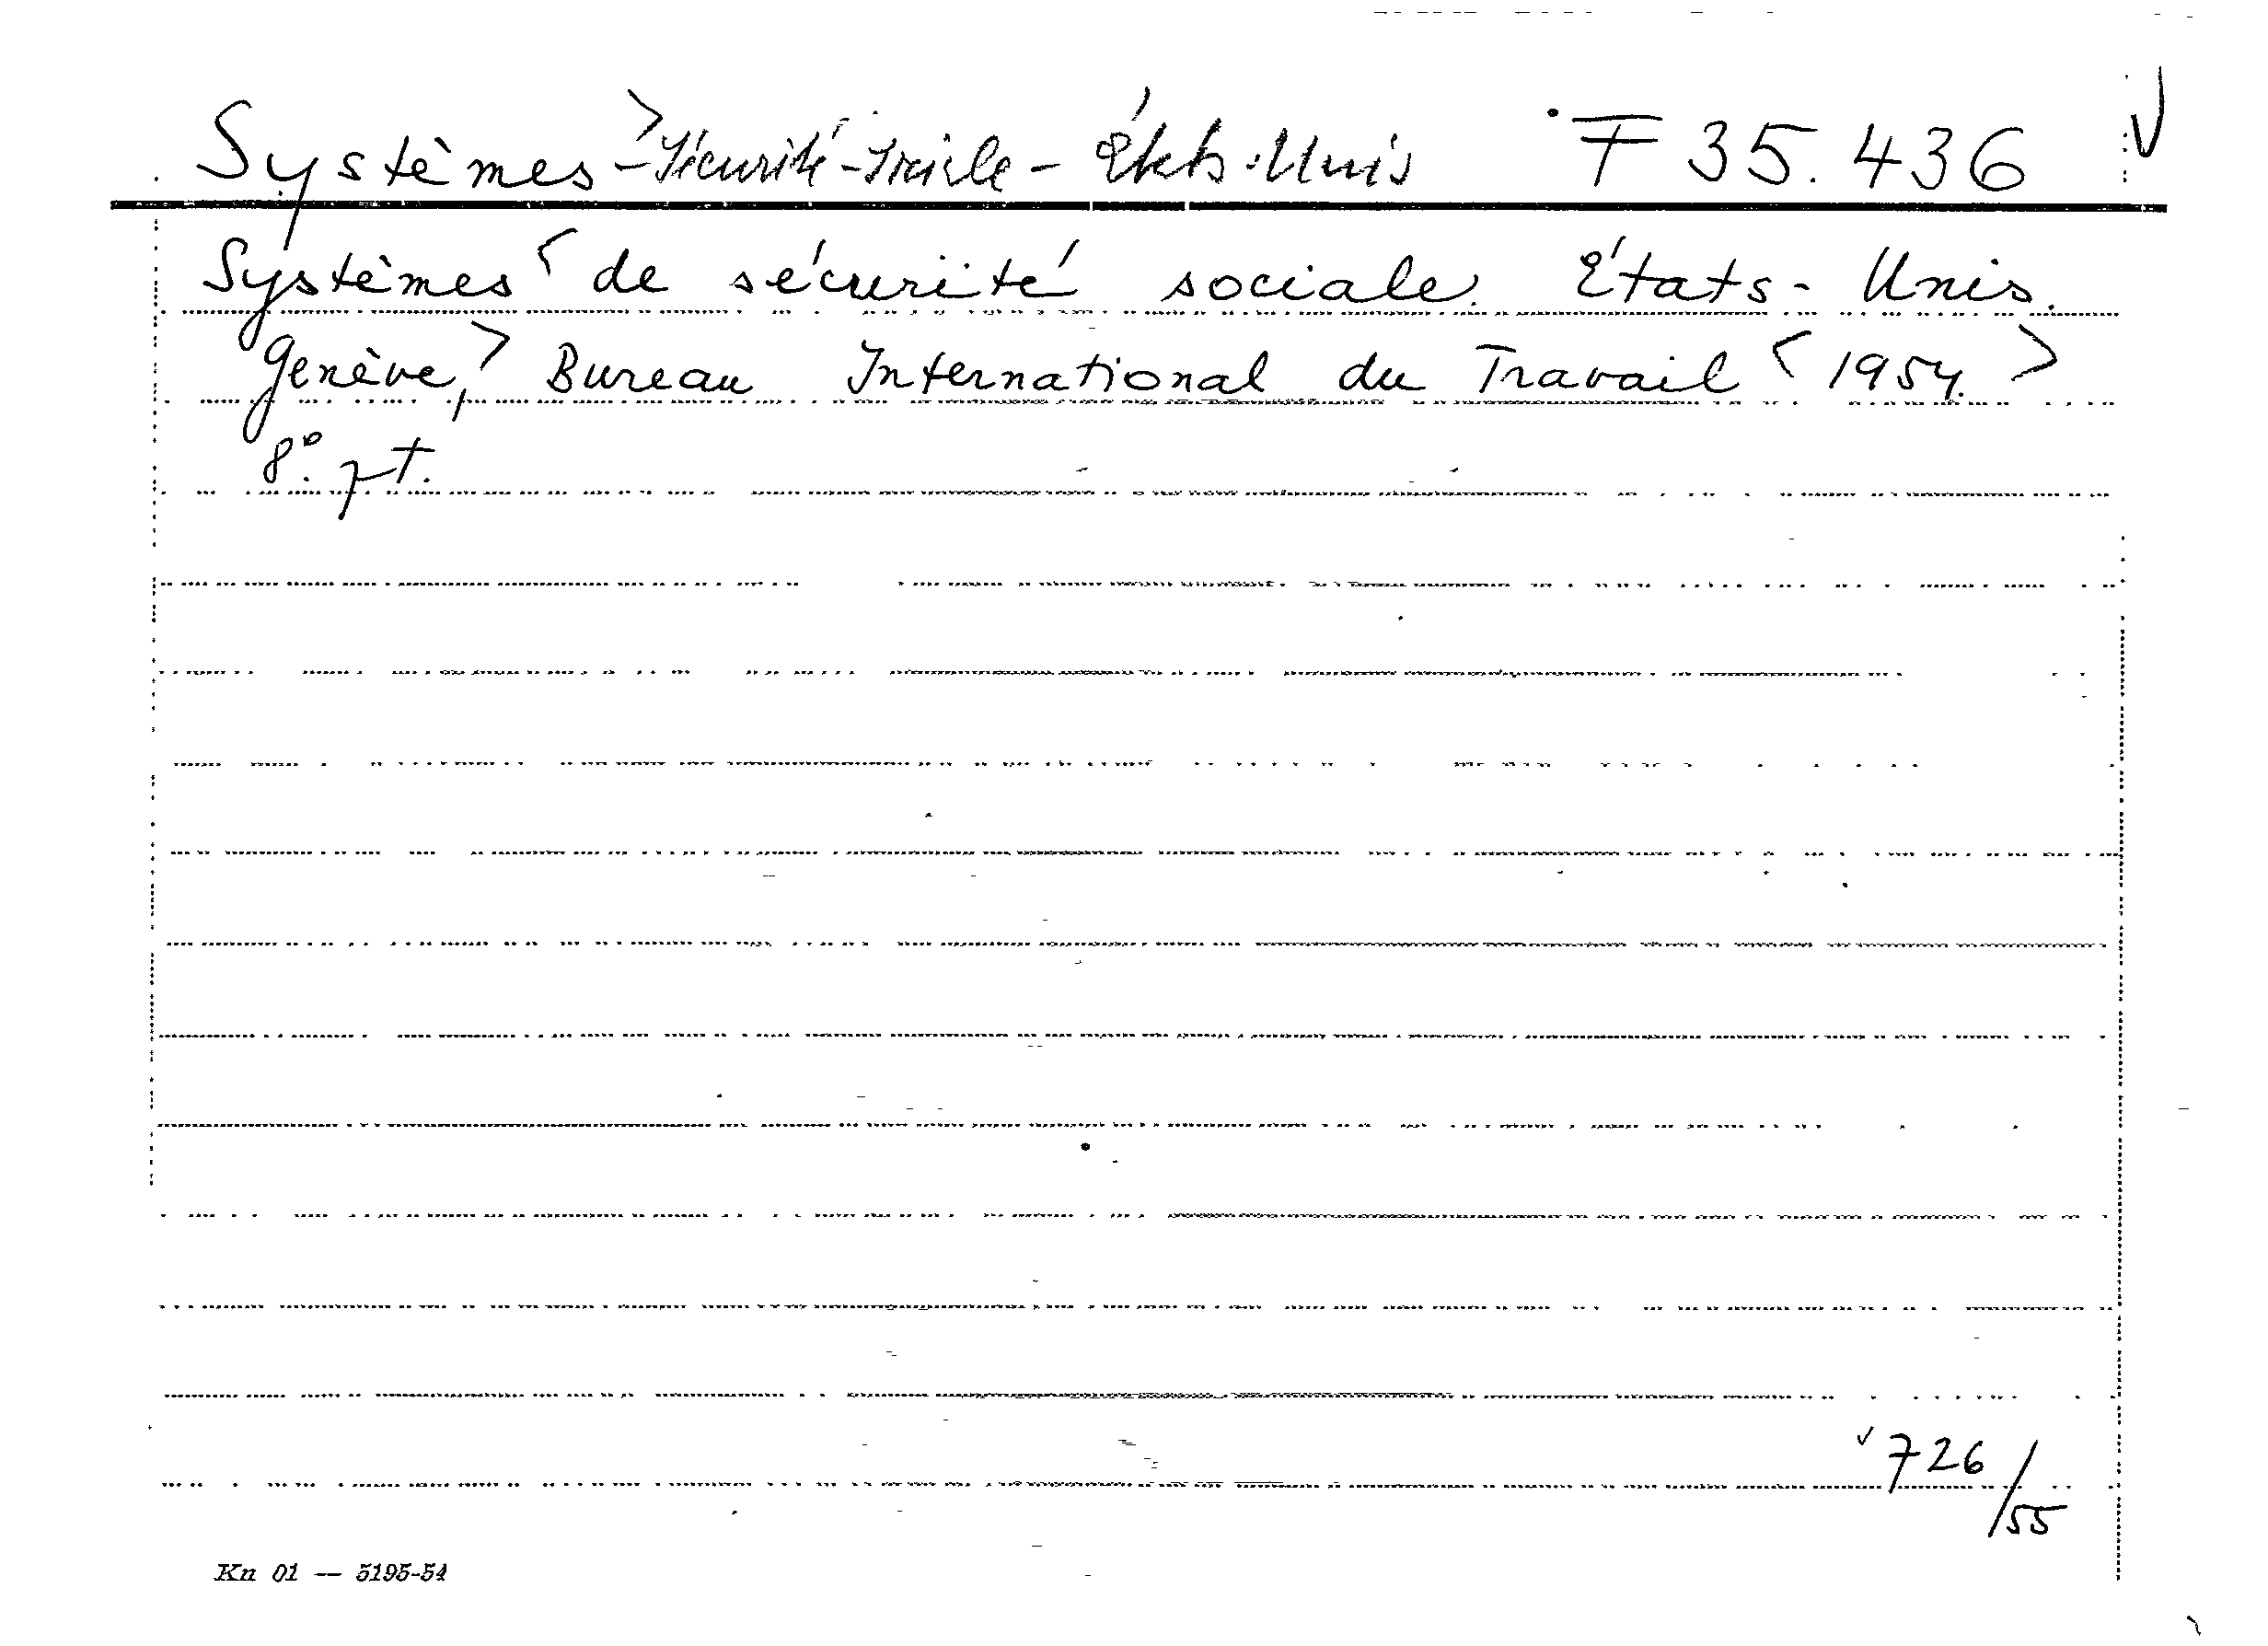 Systèmes - Sécurité - Sociale - États-Unis F 35.436
Systèmes < de sécurité sociale. États-Unis.
Genève, > Bureau International du Travail < 1954. >
8°. pt.
726/55
Kn 01 — 5195-54